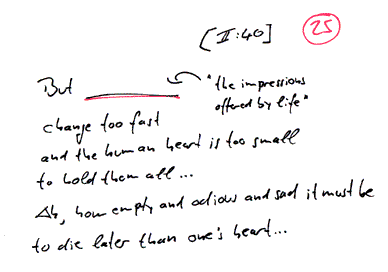 [II:40] 25
But ______ "the impressions
offered by life"
change too fast
and the human heart is too small
to hold them all...
Ah, how empty and odious and sad it must be
to die later than one's heart...